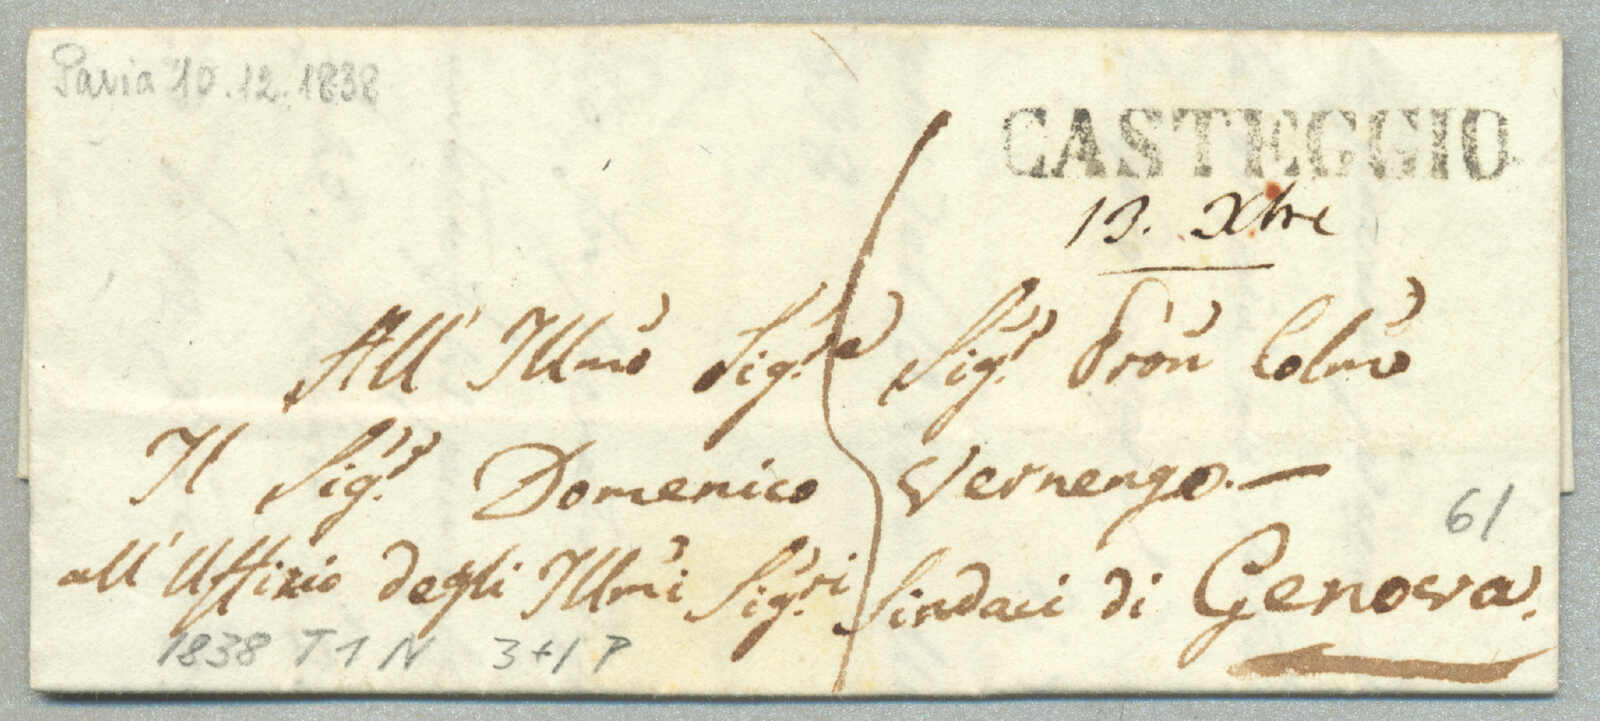 Pavia 10.12.1838
CASTEGGIO
13. Xbre
All' Illmo Sigre Sigr Pron Colmo
Il Sigr Domenico Vernengo.—
all'Uffizio degli Illmi Sigri Sindaci di Genova.
61
1838 T 1 N 3+1 P